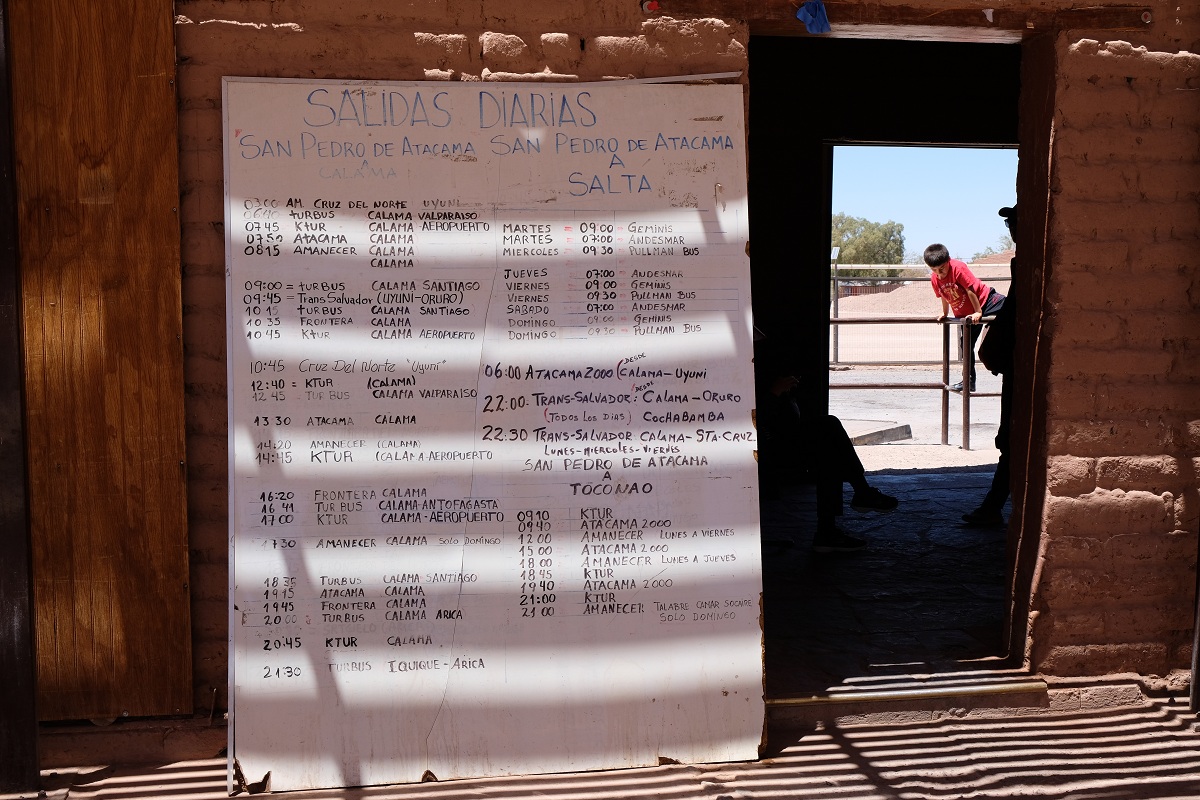 SALIDAS DIARIAS
SAN PEDRO DE ATACAMA
A
CALAMA
03:00 AM. CRUZ DEL NORTE UYUNI
06:40 TURBUS CALAMA VALPARAISO
07 45 KTUR CALAMA - AEROPUERTO
07 50 ATACAMA CALAMA
08 15 AMANECER CALAMA
CALAMA
09:00 = TURBUS CALAMA SANTIAGO
09:45 = TRANS SALVADOR (UYUNI-ORURO)
10 15 TURBUS CALAMA SANTIAGO
10 35 FRONTERA CALAMA
10 45 KTUR CALAMA AEROPUERTO
10:45 CRUZ DEL NORTE "UYUNI"
12:40 = KTUR (CALAMA)
12 45 TURBUS CALAMA VALPARAISO
13 30 ATACAMA CALAMA
14:20 AMANECER (CALAMA)
14:45 KTUR (CALAMA-AEROPUERTO
16:20 FRONTERA CALAMA
16 41 TURBUS CALAMA-ANTOFAGASTA
17 00 KTUR CALAMA-AEROPUERTO
17 30 AMANECER CALAMA SOLO DOMINGO
18 35 TURBUS CALAMA-SANTIAGO
19 15 ATACAMA CALAMA
19 45 FRONTERA CALAMA
20 00 TURBUS CALAMA ARICA
20:45 KTUR CALAMA
21:30 TURBUS IQUIQUE - ARICA
SAN PEDRO DE ATACAMA
A
SALTA
MARTES = 09:00 = GEMINIS
MARTES = 07:00 = ANDESMAR
MIERCOLES = 09 30 = PULLMAN BUS
JUEVES 07:00 = ANDESMAR
VIERNES 09 00 = GEMINIS
VIERNES 09 30 = PULLMAN BUS
SABADO 07:00 = ANDESMAR
DOMINGO 09:00 = GEMINIS
DOMINGO 09:30 = PULLMAN BUS
06:00 ATACAMA 2000 (DESDE CALAMA-UYUNI
22:00- TRANS-SALVADOR: DESDE CALAMA-ORURO
(TODOS LOS DIAS) COCHABAMBA
22:30 TRANS-SALVADOR CALAMA-STA-CRUZ
LUNES-MIERCOLES-VIERNES
SAN PEDRO DE ATACAMA
A
TOCONAO
09:10 KTUR
09:40 ATACAMA 2000
12 00 AMANECER LUNES A VIERNES
15 00 ATACAMA 2000
18 00 AMANECER LUNES A JUEVES
18 45 KTUR
19 40 ATACAMA 2000
21:00 KTUR
21 00 AMANECER TALABRE CAMAR SOCAIRE
SOLO DOMINGO